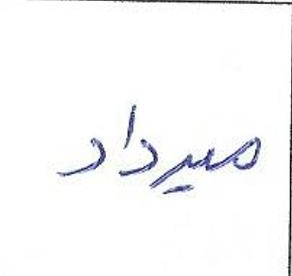 میرداد